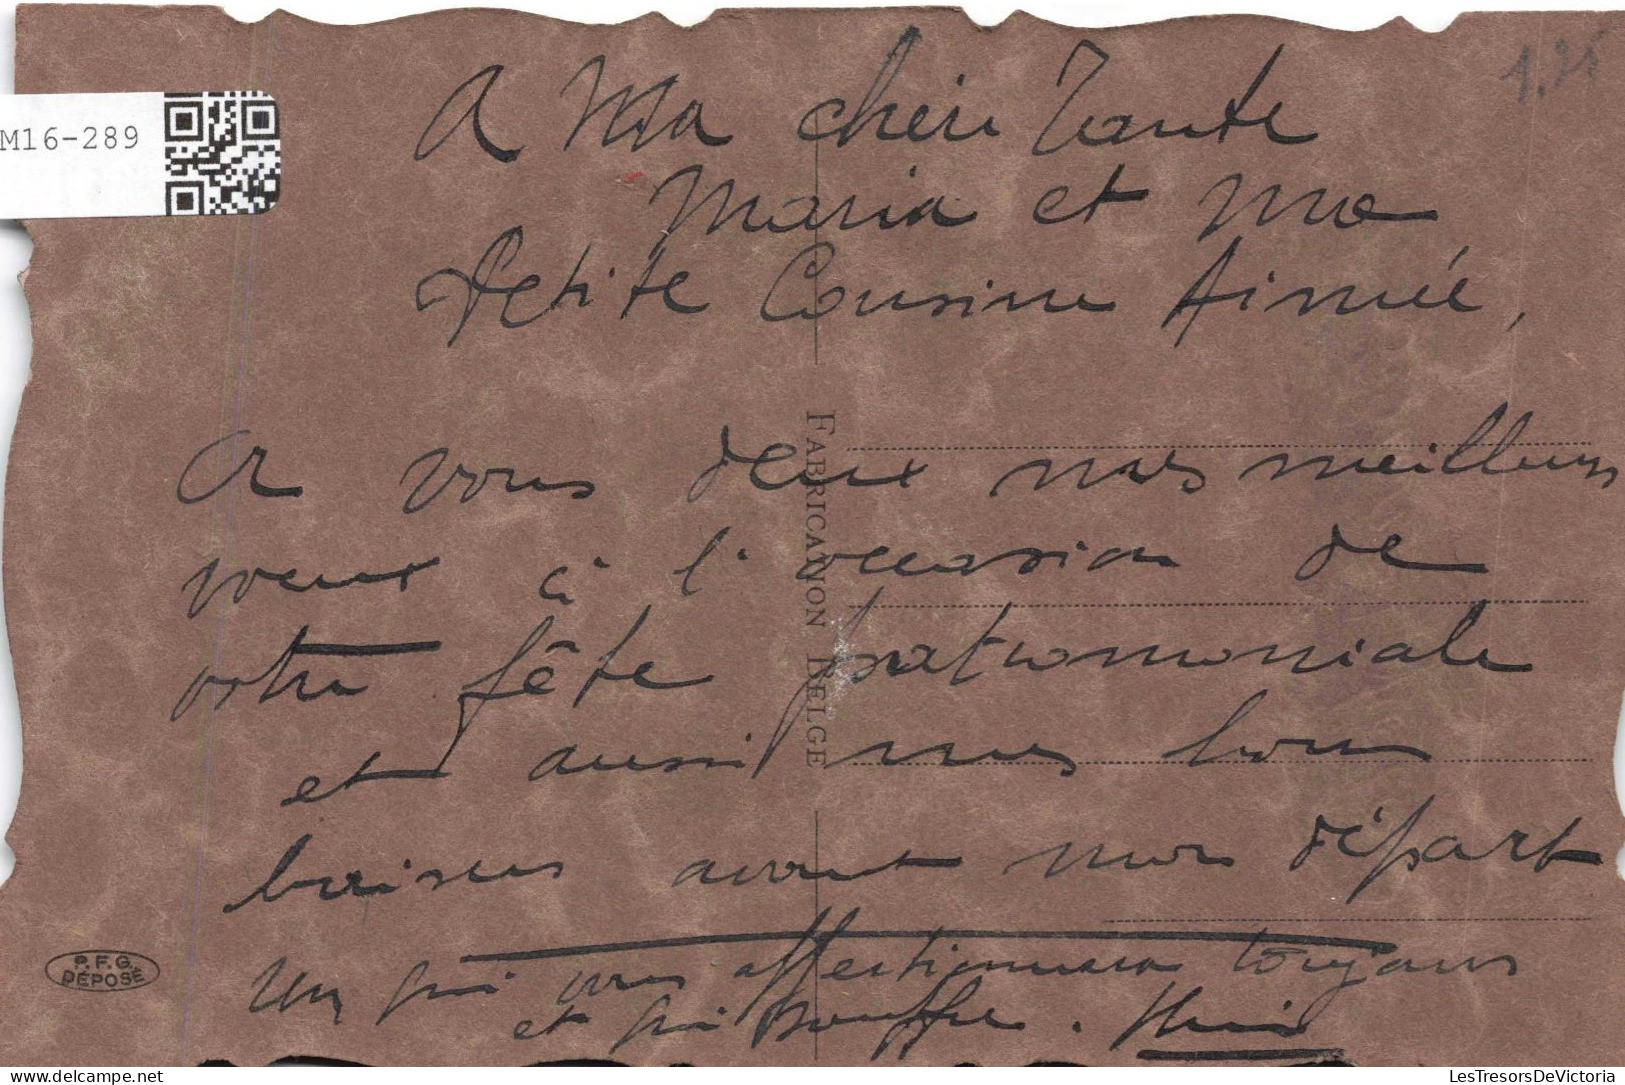 M16-289
1.25
A Ma chère Tante
Maria et Ma
Petite Cousine Aimée,
A vous deux mes meilleurs
voeux à l'occasion de
votre fête patromoniale
et aussi mes bons
baisers avant mon départ
Un qui vous affectionnera toujours
et qui souffre.
FABRICATION BELGE
P.F.G.
DÉPOSÉ
LesTresorsDeVictoria
https://www.delcampe.net